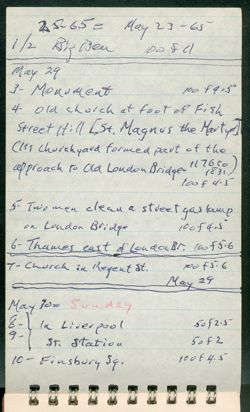 25-65 = May 23-65
1/2 Big Ben 100 f 11
May 29
3- Monument 100 f 9.5
4 - old church at foot of Fish
Street Hill [St. Magnus the Martyr]
(Its Churchyard formed part of the
approach to Old London Bridge 1176 to
1831)
100 f 4.5
5- Two men clean a street gas lamp
on London Bridge 100 f 4.5
6- Thames east of London Br. 100 f 5.6
7- Church in Regent St. 100 f 5.6
May 29
May 30 = Sunday
8- } in Liverpool 50 f 2.5
9- St. Station 50 f 2
10- Finsbury Sq. 100 f 4.5